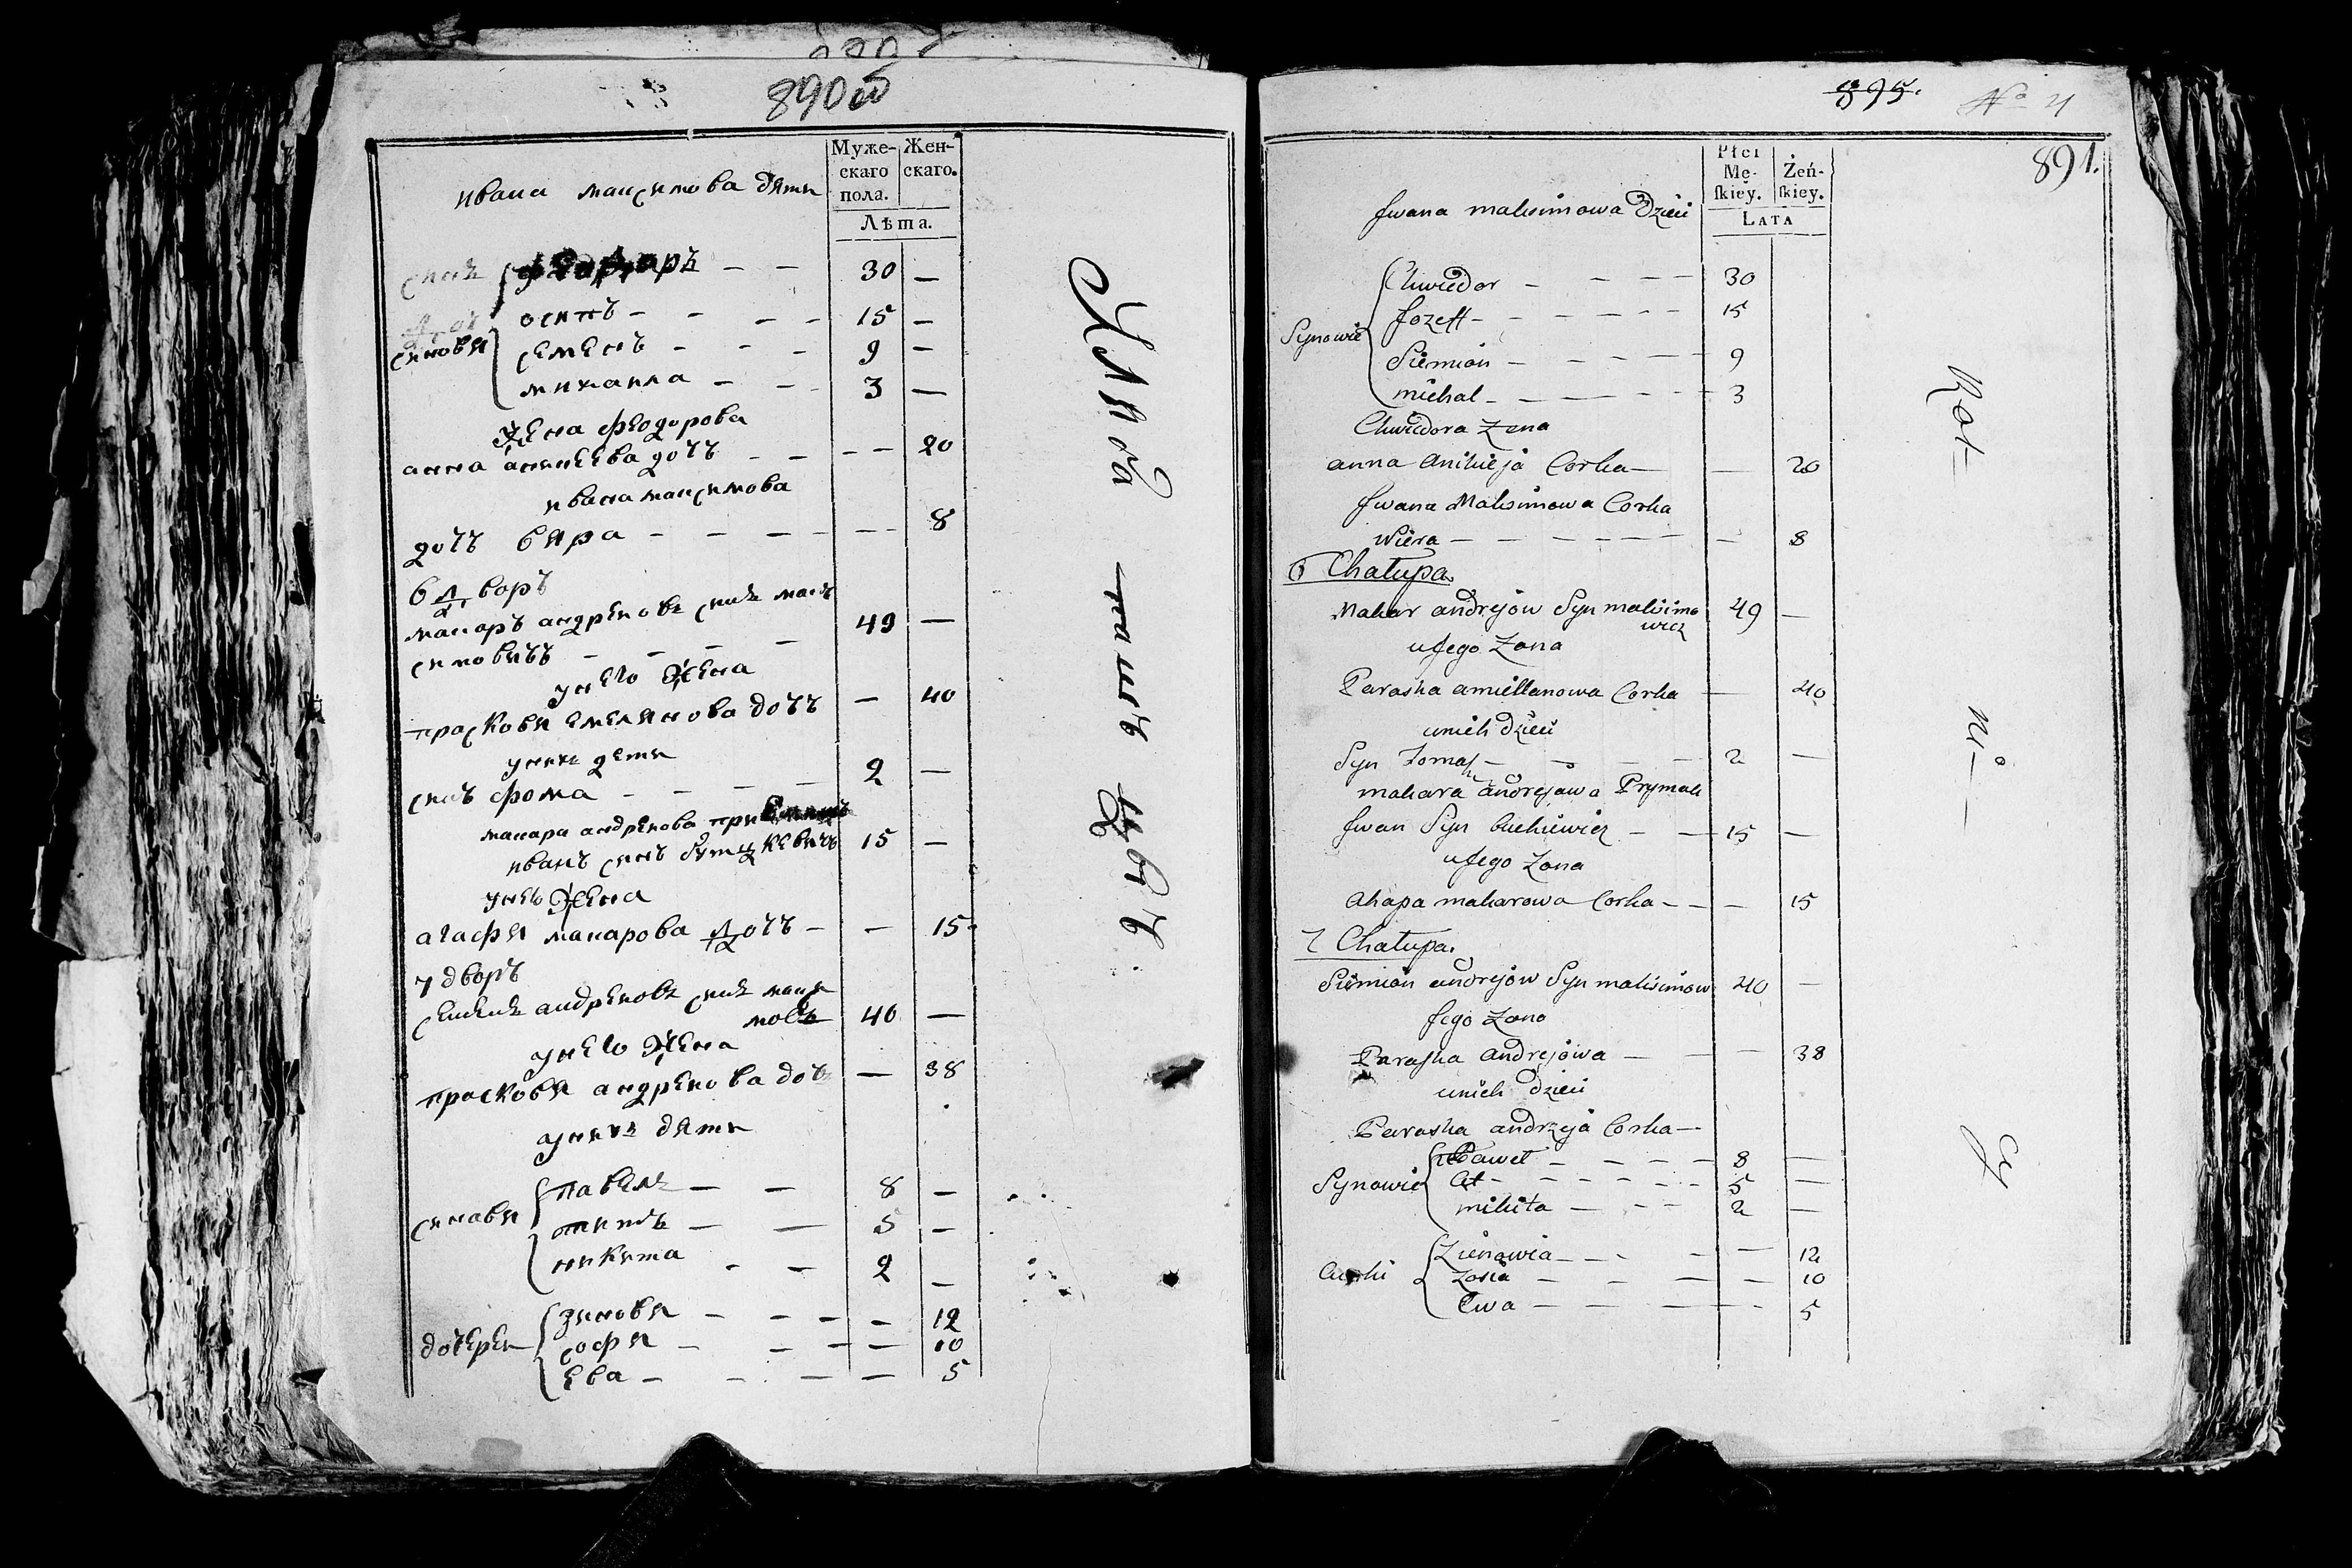 890 об
Муже-
скаго
пола.
Жен-
скаго.
Лѣта.
ивана максимова дѣти
сынъ феодоръ — — 30 —
осипъ — — — 15 —
сыновья
семенъ — — — 9 —
михаила — — 3 —
жена феодорова
анна аникеева дочь — — — 20
ивана максимова
дочь вѣра — — — — — 8
6 дворъ
макаръ андреювъ сынъ мак
симовичъ — — — — 49 —
унего жена
прасковя емелянова дочь — 40
унихъ дети
сынъ фома — — — — 2 —
макара андреюва
иванъ сынъ 15 —
унего жена
агафя макарова дочь — — 15
7 дворъ
семенъ андреювъ сынъ макси
мовъ 40 —
унего жена
прасковя андреюва дочь — 38
унихъ дѣти
сыновя
павелъ — — 8 —
5 —
никита — — 2 —
дочерей
зиновя — — — — 12
софя — — — — 10
ева — — — — 5
895.
№ 4
891.
Płci
Mę-
skiey.
Żeń-
skiey.
LATA
Jwana maksimowa Dzieci
Synowie
Chwiedor — — — — 30
Jozeff — — — — — 15
Siemion — — — — 9
michal — — — — 3
Chwiedora Zena
anna Anikieja Corka — — 20
Jwana Maksimowa Corka
Wiera — — — — — — — 8
6 Chalupa.
Makar andrejow Syn maksimo
wicz 49 —
uJego Zona
Paraska amiellanowa Corka — 40
unich Dzieci
Syn Tomasz — — — — 2 —
makara andrejowa Prymak
Jwan Syn buckiewicz — — 15 —
uJego Zona
Ahapa makarowa Corka — — — 15
7 Chalupa.
Siemion andrejow Syn maksimow 40 —
Jego Zona
Paraska Andrejowa — — — 38
unich dzieci
Paraska andrzeja Corka —
Synowie
Pawel — — — — 8 —
— — — — — 5 —
mikita — — — 2 —
Curki
Zienowia — — — — 12
Zosia — — — — 10
Ewa — — — — 5